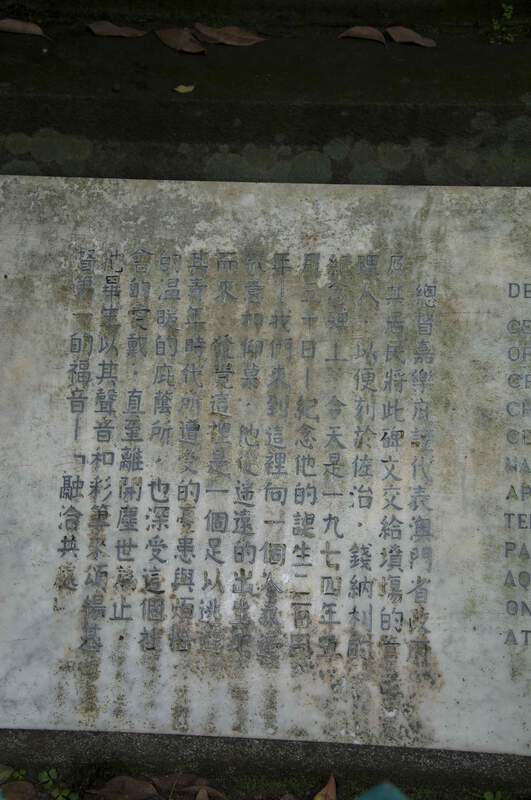 總督嘉樂庇謹代表澳門省政府
及其居民將此碑文交給墳場的管
理人．以便刻於佐治．錢納利的
紀念碑上．今天是一九七四年
月三十日—紀念他的誕生二百周
年—我們來到這裡向一個人
意和仰慕．他從遙遠的出生
而來．發覺這裡是一個足以逃避
其青年時代所遭受的憂患與煩惱
的温暖的庇蔭所．也深受這個社
會的愛戴．直至離開塵世為止．
他畢生以其聲音和彩筆來頌揚基
督第一的福音—「融洽共處」